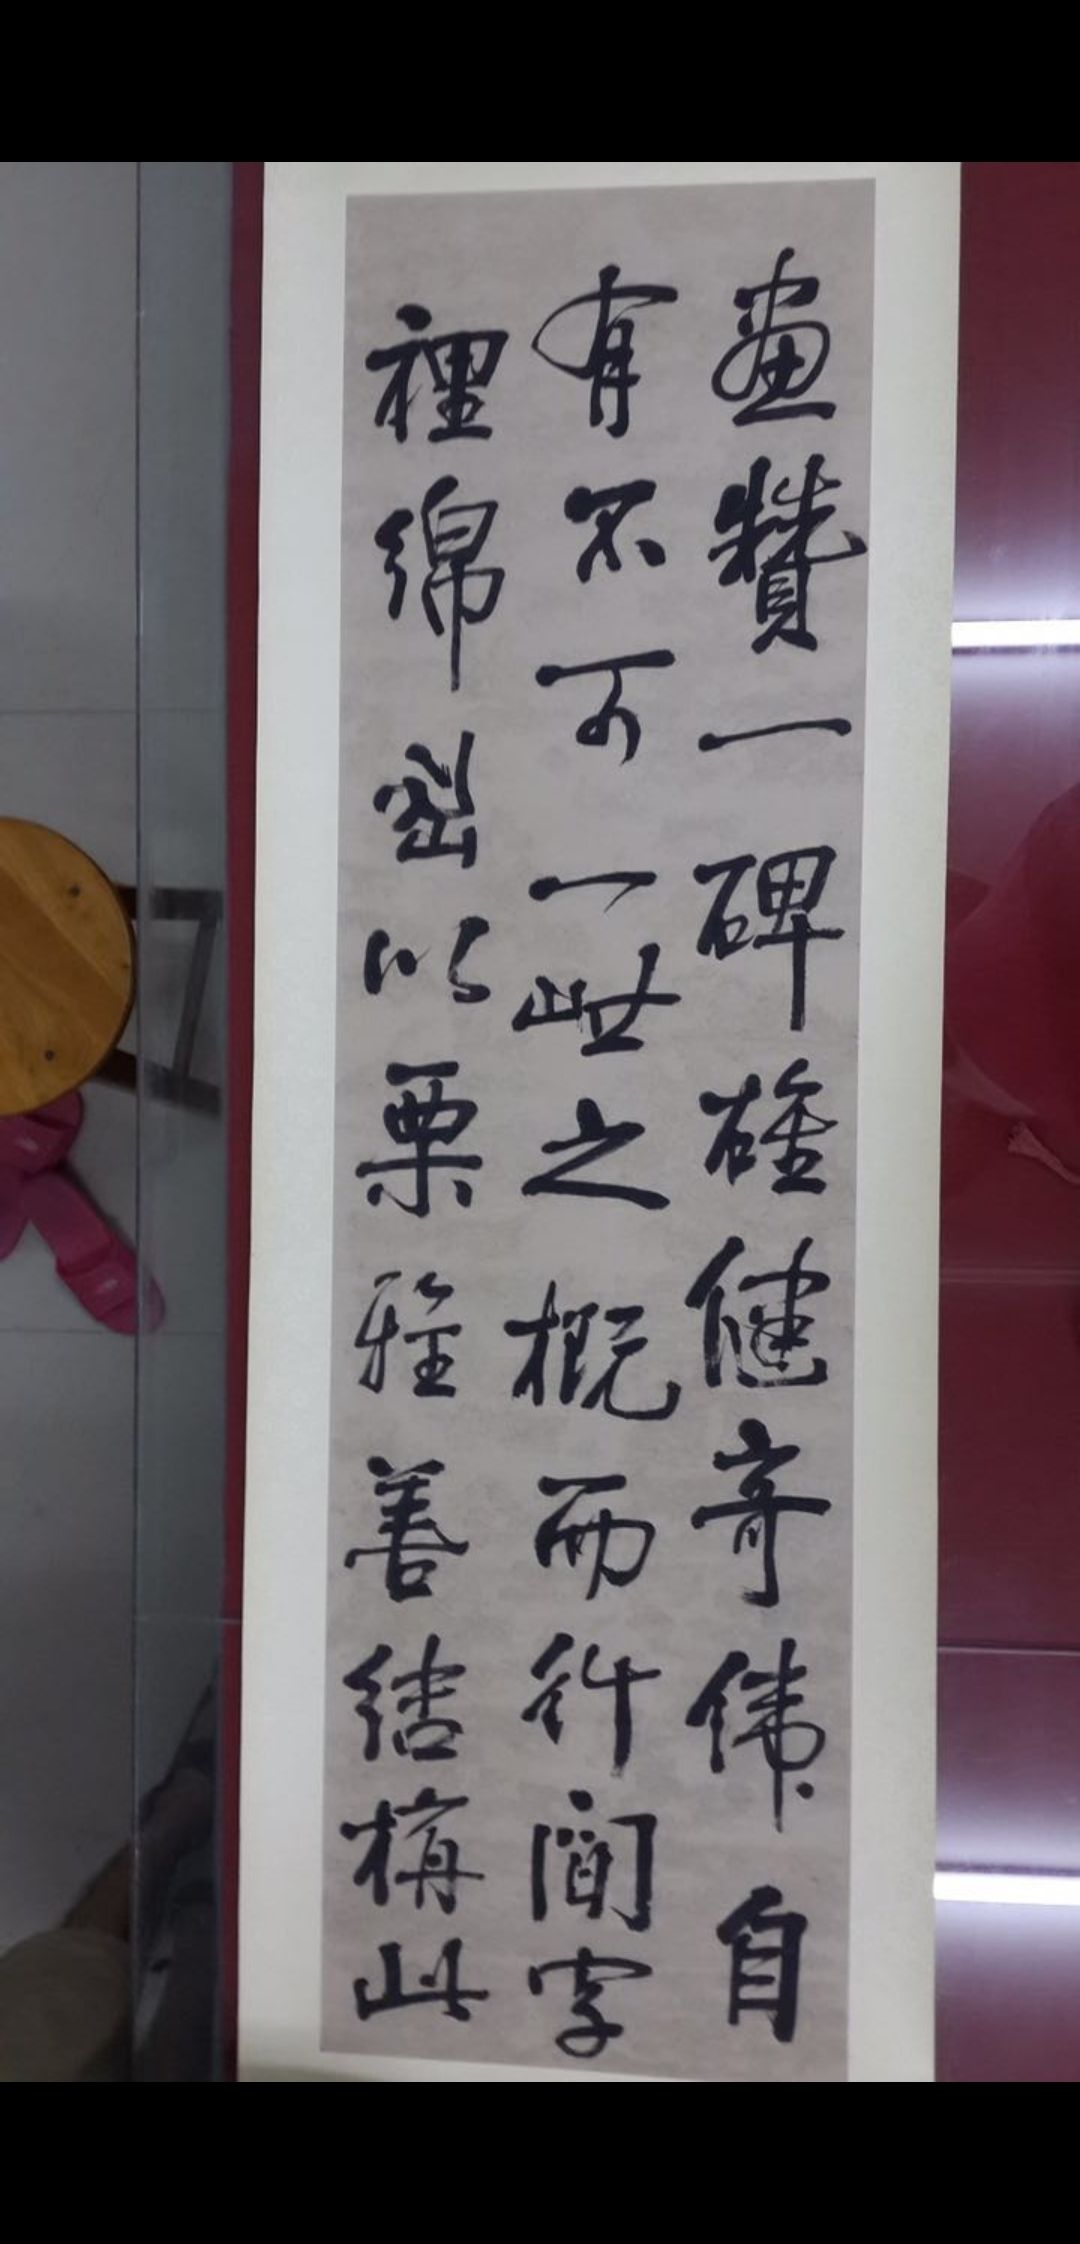 畫贊一碑雄健奇偉自
有不可一世之概而行間字
裡綿密以栗雅善結構此